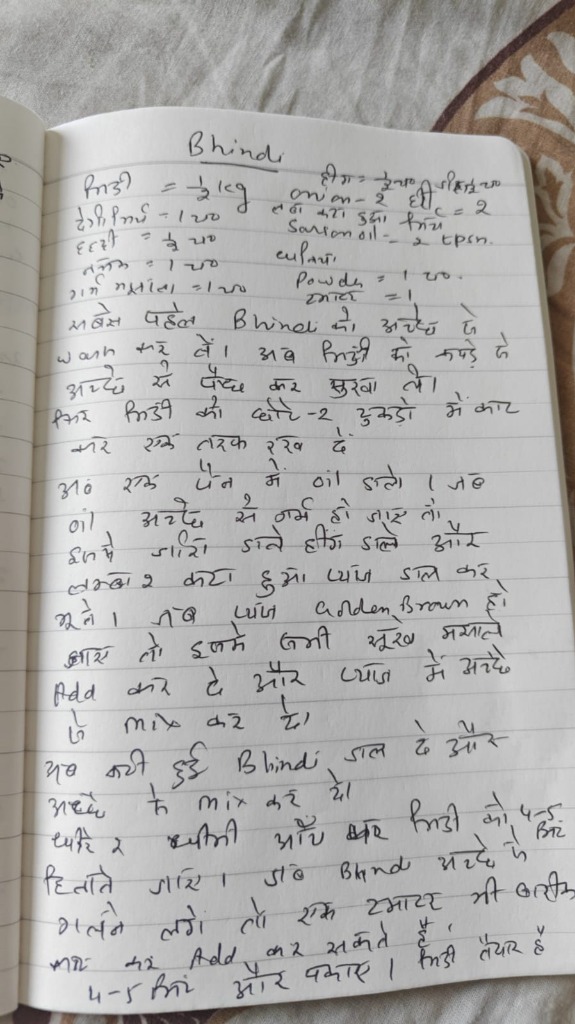 Bhindi
भिंडी = 1/2 kg
हींग = 1/2 चम जीरा 1/2 चम
देगी मिर्च = 1 चम
onion - 2
हरी मिर्च = 2
लंबा कटा हुआ
हल्दी = 1/2 चम
Sarson oil - 2 tpsn.
नमक = 1 चम
धनिया
Powder = 1 चम.
गर्म मसाला = 1 चम
टमाटर = 1
सबसे पहले Bhindi को अच्छे से
wash कर लें। अब भिंडी को कपड़े से
अच्छे से पोंछ कर सुखा लें।
फिर भिंडी को छोटे-2 टुकड़ो में काट
कर एक तरफ रख दें
अब एक पैन में oil डाले। जब
oil अच्छे से गर्म हो जाए तो
इसमे जीरा डाले हींग डाले और
लम्बा 2 कटा हुआ प्याज डाल कर
भूने। जब प्याज Golden Brown हो
जाए तो इसमे सभी सूखे मसाले
Add कर दे और प्याज में अच्छे
से mix कर दे।
अब कटी हुई Bhindi डाल दे और
अच्छे से mix कर दे।
धीरे 2 धीमी आँच पर भिंडी को 4-5 मिंट
हिलाते जाए। जब Bhindi अच्छे से
गलने लगे तो एक टमाटर भी बारीक
काट कर Add कर सकते है।
4-5 मिंट और पकाए। भिंडी तैयार है